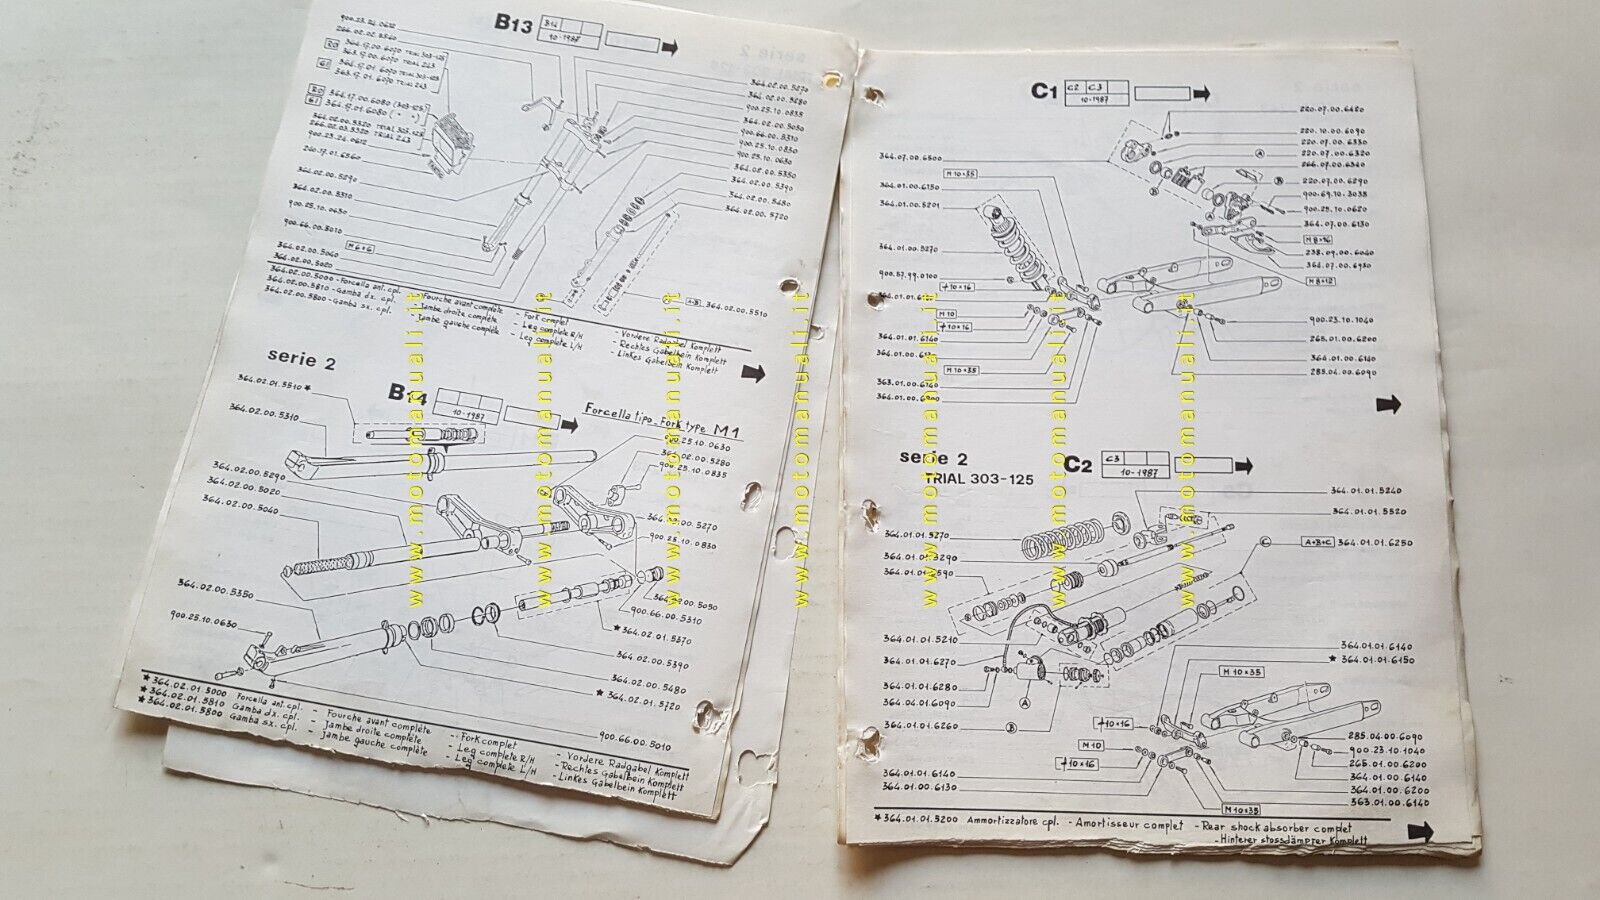 B13
B14
10-1987
900.23.24.0612
266.02.02.5560
RO
364.17.00.6070 TRIAL 303-125
363.17.00.6070 TRIAL 243
GI
364.17.01.6070 TRIAL 303-125
363.17.01.6070 TRIAL 243
RO
364.17.00.6080 (303-125)
GI
364.17.01.6080
364.02.00.5320 TRIAL 303-125
266.02.03.5320 TRIAL 243
900.23.24.0612
260.17.01.6560
364.02.00.5290
364.02.00.5310
900.25.10.0630
900.66.00.5010
M6x6
364.02.00.5040
364.02.00.5020
364.02.00.5270
364.02.00.5280
900.25.10.0835
364.02.00.5050
900.66.00.5310
900.25.10.0830
900.25.10.0630
364.02.00.5350
364.02.00.5390
364.02.00.5480
364.02.00.5720
A+B
364.02.00.5510
364.02.00.5000 - Forcella ant. cpl.
364.02.00.5810 - Gamba dx. cpl.
364.02.00.5800 - Gamba sx. cpl.
Fourche avant complète
Jambe droite complète
Jambe gauche complète
- Fork complet
- Leg complete R/H
- Leg complete L/H
- Vordere Radgabel Komplett
- Rechtes Gabelbein Komplett
- Linkes Gabelbein Komplett
serie 2
B14
10-1987
Forcella tipo - Fork type M1
364.02.01.5510 ★
364.02.00.5310
364.02.00.5290
364.02.00.5020
364.02.00.5040
364.02.00.5350
900.25.10.0630
900.25.10.0630
364.02.00.5280
900.25.10.0835
364.02.00.5270
900.25.10.0830
364.02.00.5050
900.66.00.5310
★ 364.02.01.5370
364.02.00.5390
364.02.00.5480
★ 364.02.01.5720
900.66.00.5010
★ 364.02.01.5000 Forcella ant. cpl.
★ 364.02.01.5810 Gamba dx. cpl.
★ 364.02.01.5800 Gamba sx. cpl.
- Fourche avant complète
- Jambe droite complète
- Jambe gauche complète
- Fork complet
- Leg complete R/H
- Leg complete L/H
- Vordere Radgabel Komplett
- Rechtes Gabelbein Komplett
- Linkes Gabelbein Komplett
C1
C2 C3
10-1987
364.07.00.6500
364.01.00.6150
364.01.00.5201
364.01.00.5270
900.57.99.0100
M10x35
10x16
M10
10x16
364.01.01.6140
M10x35
363.01.00.6140
364.01.00.6200
220.07.00.6420
220.10.00.6090
220.07.00.6330
220.07.00.6320
266.07.00.6340
220.07.00.6290
900.69.10.3038
900.25.10.0620
364.07.00.6130
M8x16
238.09.00.6040
364.07.00.6930
M8x12
900.23.10.1040
265.01.00.6200
364.01.00.6140
285.04.00.6090
A
B
B
A
serie 2
TRIAL 303-125
C2
C3
10-1987
364.01.01.5240
364.01.01.5520
C
A+B+C
364.01.01.6250
364.01.01.5270
364.01.01.5210
364.01.01.6270
364.01.01.6280
364.04.01.6090
364.01.01.6260
A
B
364.01.01.6140
★ 364.01.01.6150
M10x35
10x16
M10
10x16
364.01.01.6140
364.01.00.6130
285.04.00.6090
900.23.10.1040
265.01.00.6200
364.01.00.6140
364.01.00.6200
363.01.00.6140
M10x35
★ 364.01.01.5200 Ammortizzatore cpl. - Amortisseur complet - Rear shock absorber complet
- Hinterer stossdämprer Komplett
www.motomanuali.it
www.motomanuali.it
www.motomanuali.it
www.motomanuali.it
www.motomanuali.it
www.motomanuali.it
www.motomanuali.it